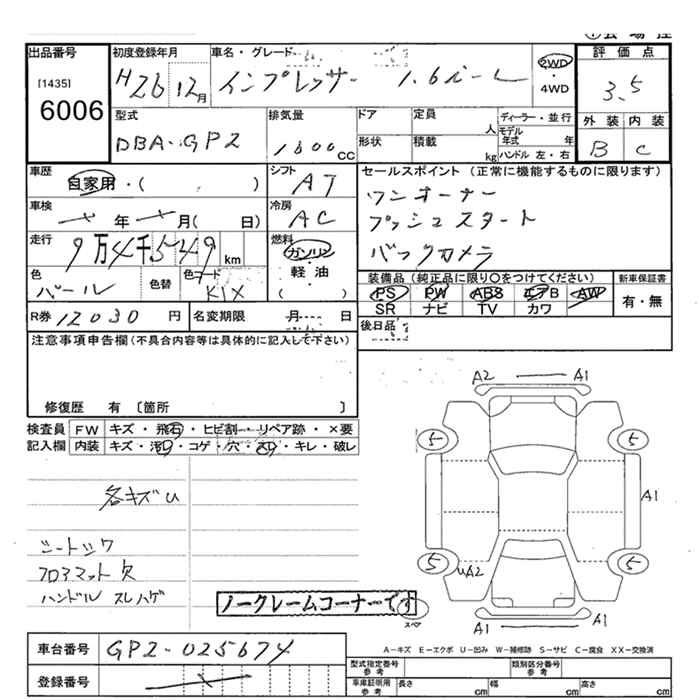 出品番号
[1435]
6006
初度登録年月
H26 12月
車名・グレード
インプレッサー 1.6i-L
2WD
・
4WD
評価点
3.5
外装 内装
B C
型式
DBA-GP2
排気量
1600CC
ドア
形状
定員 人
積載 kg
ディーラー・並行
モデル
年式 年
ハンドル 左・右
車歴
自家用・( )
シフト
AT
車検
年 月( 日)
冷房
AC
走行
9万4千549km
燃料
ガソリン
・
軽油
( )
色
パール
色替
色コード
K1X
R券 12030円
名変期限 月 日
セールスポイント(正常に機能するものに限ります)
ワンオーナー
プッシュスタート
バックカメラ
装備品(純正品に限り〇をつけてください)
PS PW ABS エアB AW
SR ナビ TV カワ
新車保証書
有・無
後日品
注意事項申告欄(不具合内容等は具体的に記入して下さい)
修復歴 有 〔箇所 〕
検査員
記入欄
FW キズ・飛石・ヒビ割・リペア跡・×要
内装 キズ・汚れ・コゲ・穴・凹・キレ・破レ
各キズU
シートシワ
フロアマット欠
ハンドルスレハゲ
ノークレームコーナーです
A2 A1
5 5
A1
5 5
UA2
スペア
A1 A1
A-キズ E-エクボ U-凹み W-補修跡 S-サビ C-腐食 XX-交換済
車台番号 GP2-025674
登録番号
型式指定番号
参考
類別区分番号
参考
車庫証明用
参考
長さ cm
幅 cm
高さ cm